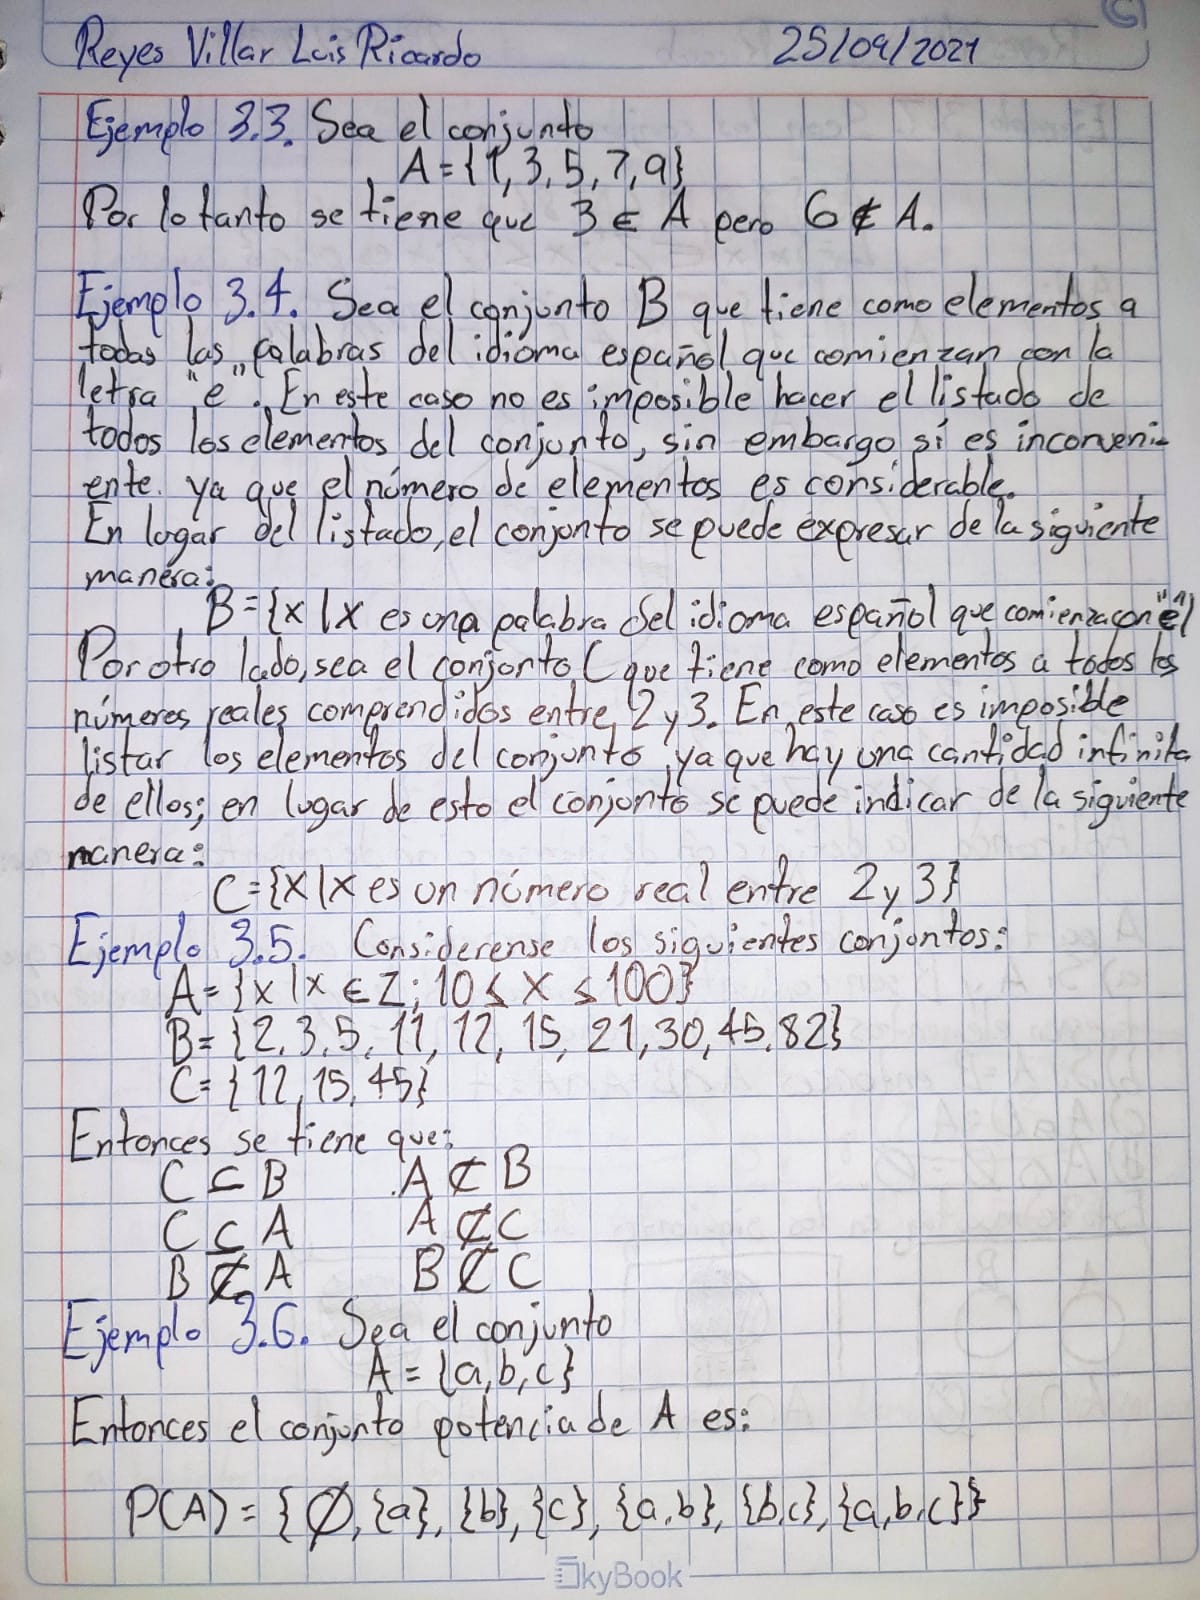 Reyes Villar Luis Ricardo 25/09/2021
Ejemplo 3.3. Sea el conjunto
A = {1, 3, 5, 7, 9}
Por lo tanto se tiene que 3 ∈ A pero 6 ∉ A.
Ejemplo 3.4. Sea el conjunto B que tiene como elementos a
todas las palabras del idioma español que comienzan con la
letra "e". En este caso no es imposible hacer el listado de
todos los elementos del conjunto, sin embargo sí es inconveni-
ente. ya que el número de elementos es considerable.
En lugar del listado, el conjunto se puede expresar de la siguiente
manera:
B = {x | x es una palabra del idioma español que comienza con "e"}
Por otro lado, sea el conjunto C que tiene como elementos a todos los
números reales comprendidos entre 2 y 3. En este caso es imposible
listar los elementos del conjunto ya que hay una cantidad infinita
de ellos; en lugar de esto el conjunto se puede indicar de la siguiente
manera:
C = {x | x es un número real entre 2 y 3}
Ejemplo 3.5. Considerense los siguientes conjuntos:
A = {x | x ∈ Z; 10 ≤ x ≤ 100}
B = {2, 3, 5, 11, 12, 15, 21, 30, 45, 82}
C = {12, 15, 45}
Entonces se tiene que:
C ⊆ B A ⊄ B
C ⊆ A A ⊄ C
B ⊄ A B ⊄ C
Ejemplo 3.6. Sea el conjunto
A = {a, b, c}
Entonces el conjunto potencia de A es:
P(A) = {∅, {a}, {b}, {c}, {a, b}, {b, c}, {a, b, c}}
SkyBook